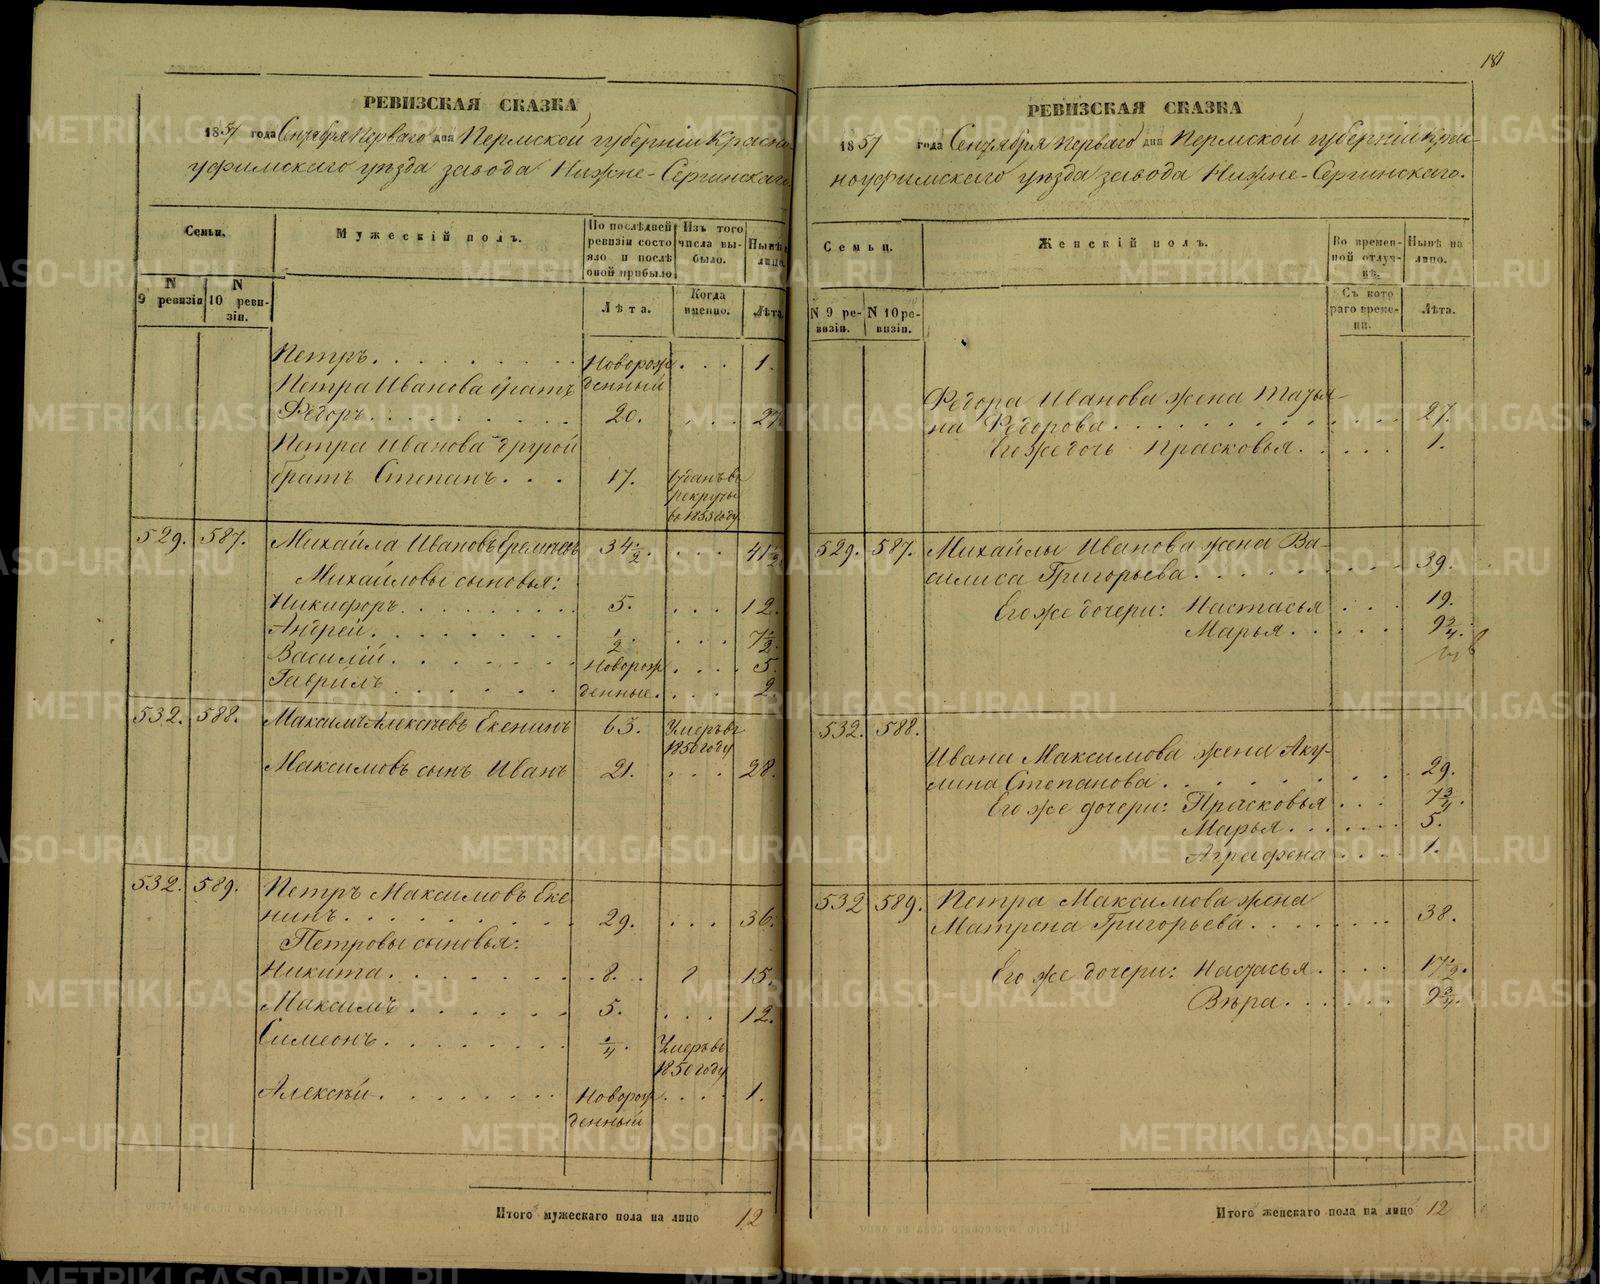 РЕВИЗСКАЯ СКАЗКА
1857 года Сентября Перваго дня Пермской губерніи Красно-
уфимскаго уѣзда завода Нижне-Сергинскаго.
Семьи.
Мужескій полъ.
По послѣдней ревизіи состояло и послѣ оной прибыло
Изъ того числа выбыло.
Нынѣ на лицо.
N 9 ревизіи
N 10 ревизіи.
Лѣта.
Когда именно.
Лѣта.
Петръ. Новорожденный . . . 1.
Петра Иванова братъ
Федоръ. 20. . . . . 27.
Петра Иванова другой
братъ Степанъ. . . . 17. Отданъ въ рекруты въ 1855 году
529. 587. Михайла Ивановъ 34 1/2. . . . . 41 1/2
Михайловы сыновья:
Никифоръ. 5. . . . 12.
Андрей. 1/2. . . . 7 1/2.
Василій. Новорож- . . . . 5.
Гаврилъ. денные. . . . . 2.
532. 588. Максимъ Алексѣевъ Екенинъ 65. Умеръ въ 1850 году
Максимовъ сынъ Иванъ 21. . . . 28.
532. 589. Петръ Максимовъ Еке-
нинъ. 29. . . . 36.
Петровы сыновья:
Никита. 8. 15.
Максимъ. 5. . . . 12.
Симеонъ. 1/4. Умеръ въ 1850 году
Алексѣй. Новорожденный . . . . 1.
Итого мужескаго пола на лицо 12
181
РЕВИЗСКАЯ СКАЗКА
1857 года Сентября Перваго дня Пермской губерніи Крас-
ноуфимскаго уѣзда завода Нижне-Сергинскаго.
Семьи.
Женскій полъ.
Во временной отлучкѣ.
Нынѣ на лицо.
N 9 ревизіи.
N 10 ревизіи.
Съ котораго времени.
Лѣта.
Федора Иванова жена Татья-
на Федорова. 27.
Его же дочь Прасковья. 1.
529. 587. Михайлы Иванова жена Ва-
силиса Григорьева. 39.
Его же дочери: Настасья . . . 19.
Марья. 9 3/4.
532. 588.
Ивана Максимова жена Аку-
лина Степанова. 29.
Его же дочери: Прасковья . . . 7 3/4.
Марья. 5.
Аграфена 1.
532 589. Петра Максимова жена
Матрена Григорьева. 38.
Его же дочери: Настасья. 17 1/2.
Вѣра. 9 3/4.
Итого женскаго пола на лицо 12
METRIKI.GASO-URAL.RU